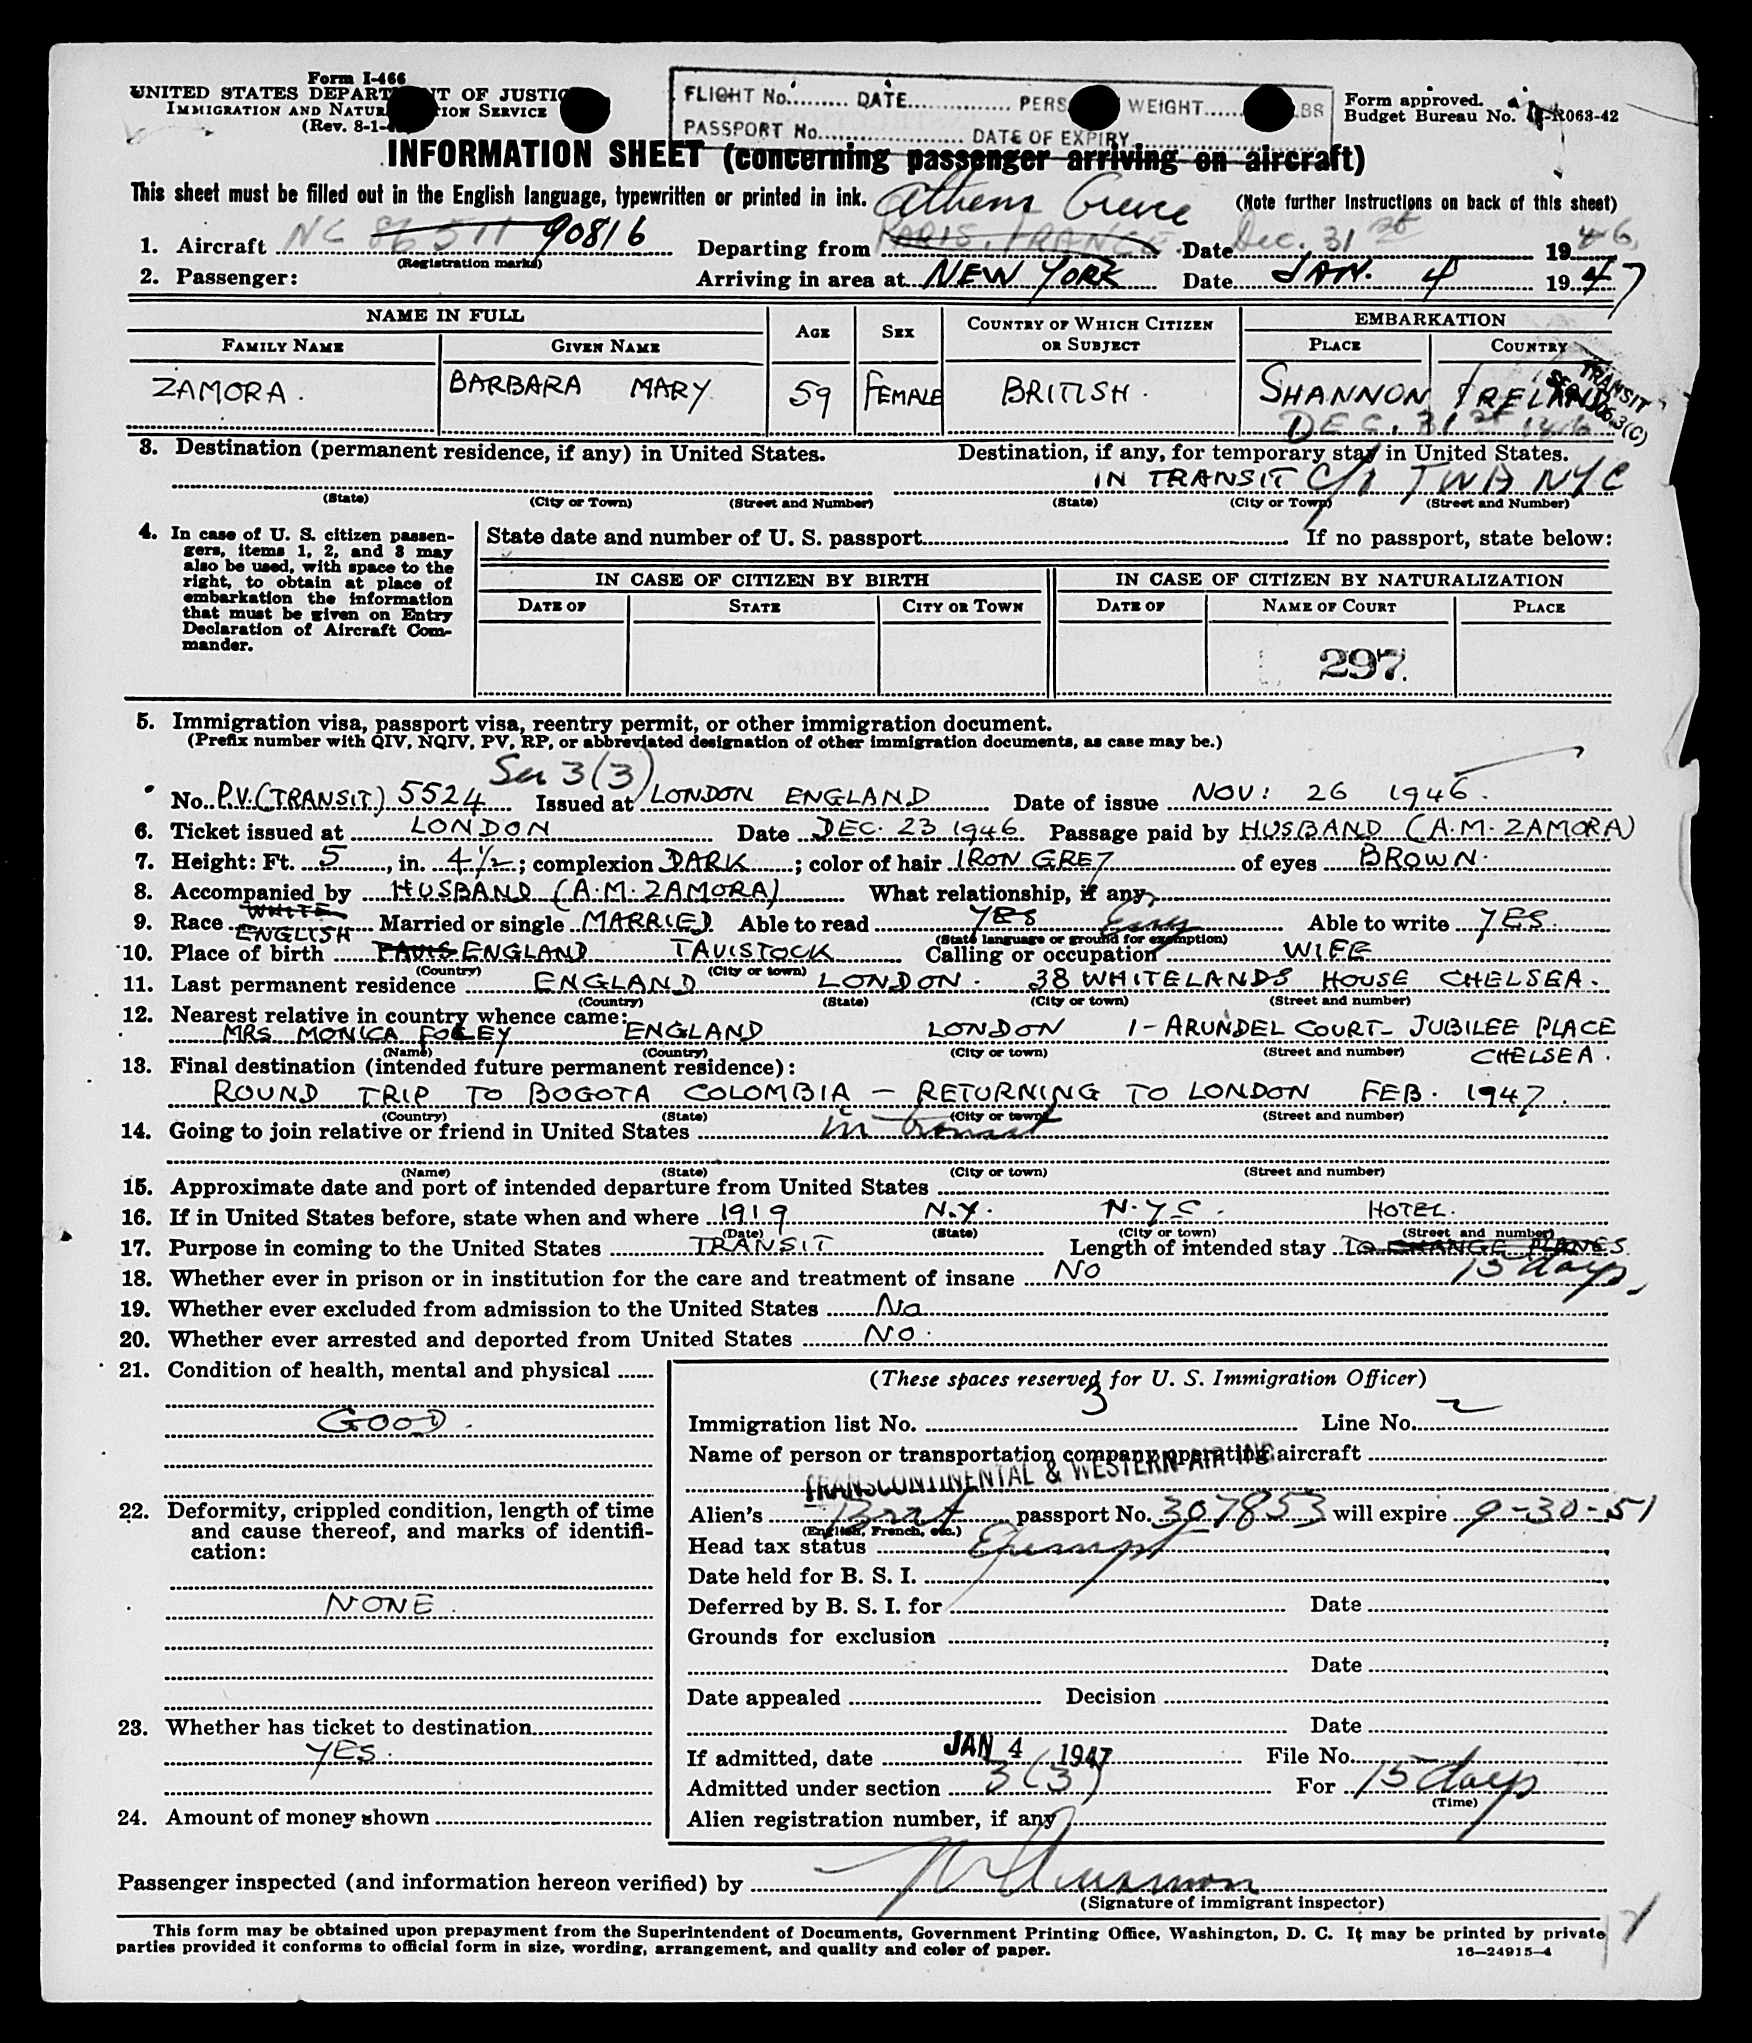 Form I-466
UNITED STATES DEPARTMENT OF JUSTICE
IMMIGRATION AND NATURALIZATION SERVICE
(Rev. 8-1-
FLIGHT No......... DATE............... PERS WEIGHT...... LBS
PASSPORT No..................... DATE OF EXPIRY
Form approved.
Budget Bureau No. -R063-42
INFORMATION SHEET (concerning passenger arriving on aircraft)
This sheet must be filled out in the English language, typewritten or printed in ink. Athens Greece (Note further instructions on back of this sheet)
1. Aircraft NC 86511 90816 Departing from PARIS, FRANCE Date Dec. 31st 1946
(Registration marks)
2. Passenger: Arriving in area at NEW YORK Date JAN. 4 1947
NAME IN FULL AGE SEX COUNTRY OF WHICH CITIZEN OR SUBJECT EMBARKATION
FAMILY NAME GIVEN NAME PLACE COUNTRY
ZAMORA. BARBARA MARY 59 FEMALE BRITISH. SHANNON IRELAND
TRANSIT
DEC. 31st 1946
3. Destination (permanent residence, if any) in United States. Destination, if any, for temporary stay in United States.
IN TRANSIT C/o TWA NYC
(State) (City or Town) (Street and Number) (State) (City or Town) (Street and Number)
4. In case of U. S. citizen passengers, items 1, 2, and 3 may also be used, with space to the right, to obtain at place of embarkation the information that must be given on Entry Declaration of Aircraft Commander.
State date and number of U. S. passport If no passport, state below:
IN CASE OF CITIZEN BY BIRTH IN CASE OF CITIZEN BY NATURALIZATION
DATE OF STATE CITY OR TOWN DATE OF NAME OF COURT PLACE
297.
5. Immigration visa, passport visa, reentry permit, or other immigration document.
(Prefix number with QIV, NQIV, PV, RP, or abbreviated designation of other immigration documents, as case may be.)
Sec 3(3)
No. P.V.(TRANSIT) 5524 Issued at LONDON ENGLAND Date of issue NOV: 26 1946.
6. Ticket issued at LONDON Date DEC. 23 1946 Passage paid by HUSBAND (A.M. ZAMORA)
7. Height: Ft. 5, in. 4 1/2; complexion DARK; color of hair IRON GREY of eyes BROWN.
8. Accompanied by HUSBAND (A.M. ZAMORA) What relationship, if any,
9. Race WHITE ENGLISH Married or single MARRIED Able to read YES Eng Able to write YES.
(State language or ground for exemption)
10. Place of birth ENGLAND TAVISTOCK Calling or occupation WIFE
(Country) (City or town)
11. Last permanent residence ENGLAND LONDON. 38 WHITELANDS HOUSE CHELSEA.
(Country) (State) (City or town) (Street and number)
12. Nearest relative in country whence came:
MRS MONICA FOLEY ENGLAND LONDON 1-ARUNDEL COURT- JUBILEE PLACE
(Name) (Country) (City or town) (Street and number) CHELSEA.
13. Final destination (intended future permanent residence):
ROUND TRIP TO BOGOTA COLOMBIA — RETURNING TO LONDON FEB. 1947.
(Country) (State) (City or town) (Street and number)
14. Going to join relative or friend in United States in transit
(Name) (State) (City or town) (Street and number)
15. Approximate date and port of intended departure from United States
16. If in United States before, state when and where 1919 N.Y. N.Y.C. HOTEL.
(Date) (State) (City or town) (Street and number)
17. Purpose in coming to the United States TRANSIT Length of intended stay TO CHANGE PLANES
18. Whether ever in prison or in institution for the care and treatment of insane NO 15 days
19. Whether ever excluded from admission to the United States No
20. Whether ever arrested and deported from United States NO.
21. Condition of health, mental and physical
GOOD.
22. Deformity, crippled condition, length of time and cause thereof, and marks of identification:
NONE.
23. Whether has ticket to destination
YES.
24. Amount of money shown
(These spaces reserved for U. S. Immigration Officer)
Immigration list No. 3 Line No. 2
Name of person or transportation company operating aircraft
TRANSCONTINENTAL & WESTERN AIR INC.
Alien's Brit passport No. 307853 will expire 9-30-51
(English, French, etc.)
Head tax status Exempt
Date held for B. S. I.
Deferred by B. S. I. for Date
Grounds for exclusion
Date
Date appealed Decision
Date
If admitted, date JAN 4 1947 File No.
Admitted under section 3(3) For 15 days
(Time)
Alien registration number, if any
Passenger inspected (and information hereon verified) by
(Signature of immigrant inspector)
This form may be obtained upon prepayment from the Superintendent of Documents, Government Printing Office, Washington, D. C. It may be printed by private
parties provided it conforms to official form in size, wording, arrangement, and quality and color of paper. 16—24915-4